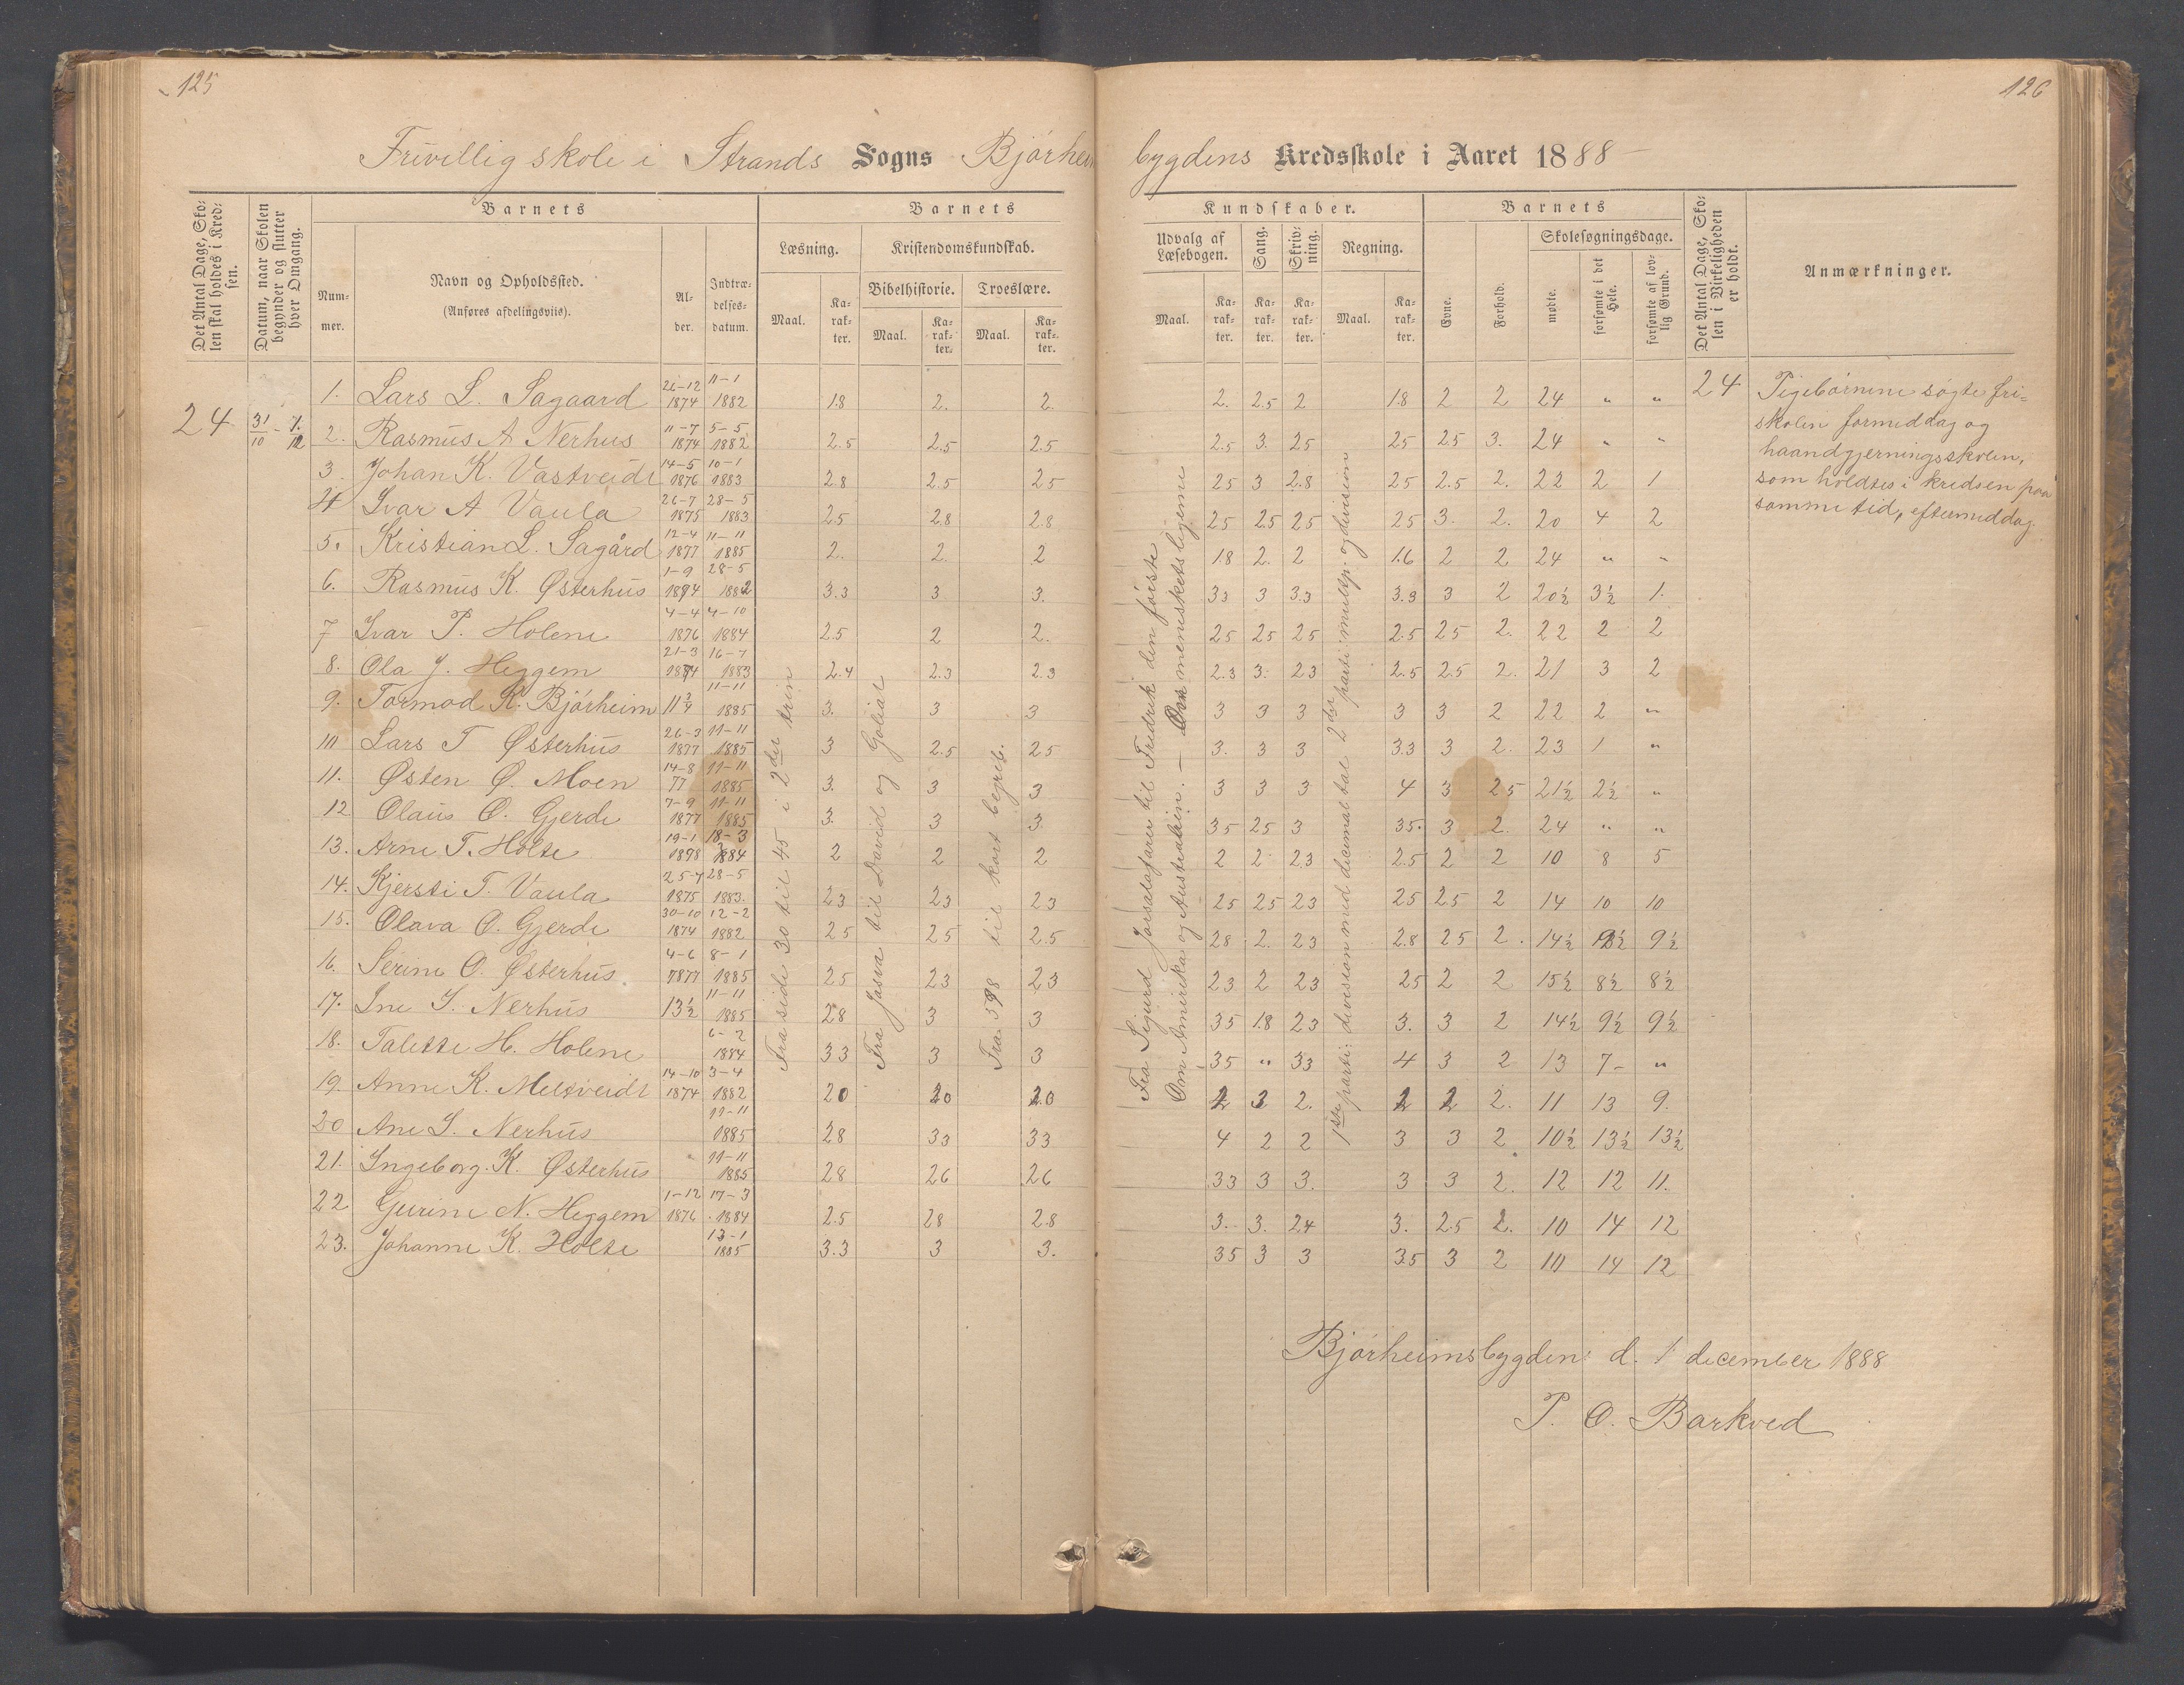 125
126
Frivillig skole i Strands Sogns Bjórheims
bygdens Kredsskole i Aaret 1888
Det Antal Dage, Skolen skal holdes i Kredsen.
Datum, naar Skolen begynder og slutter hver Omgang.
Barnets
Nummer.
Navn og Opholdssted.
(Anføres afdelingsviis).
Alder.
Indtrædelsesdatum.
Barnets
Læsning.
Kristendomskundskab.
Bibelhistorie. Troeslære.
Maal. Karakter. Maal. Karakter. Maal. Karakter.
Kundskaber.
Udvalg af Læsebogen. Sang. Skrivning. Regning.
Maal. Karakter. Karakter. Karakter. Maal. Karakter.
Barnets
Evne. Forhold.
Skolesøgningsdage.
mødte. forsømte i det Hele. forsømte af lovlig Grund.
Det Antal Dage, Skolen i Virkeligheden er holdt.
Anmærkninger.
24 31/10 - 1/12
1. Lars L. Sagaard 26-12 1874 11-1 1882 1.8 2. 2. 2. 2.5 2 1.8 2 2 24 " " 24
2. Rasmus A Nerhus 11-7 1874 5-5 1882 2.5 2.5 2.5 2.5 3. 25 25 2.5 3. 24 " "
3. Johan K. Vastveidt 14-5 1876 10-1 1883 2.8 2.5 25 25 3 2.8 25 2.5 2. 22 2 1
4 Ivar A Vaula 26-7 1875 28-5 1883 25 28 28 25 25 25 25 3. 2. 20 4 2
5. Kristian L. Sagård 12-4 1877 11-11 1885 2. 2. 2 1.8 2. 2 1.6 2 2 24 " "
6. Rasmus K. Østerhus 1-9 1874 28-5 1882 3.3 3 3. 33 3 3.3 3.3 3 2 20½ 3½ 1.
7 Ivar P. Holene 4-4 1876 4-10 1884 25 2 2. 25 25 25 2.5 25 2. 22 2 2
8. Ola J. Heggem 21-3 1874 16-7 1883 2.4 2.3 2.3 2.3 3. 23 2.5 25 2. 21 3 2
9. Tormod K. Bjórheim 11¾ 11-11 1885 3. 3 3 3 3 3 3 3 2 22 2 "
10 Lars T Østerhus 26-3 1877 11-11 1885 3 2.5 25 3. 3 3 3.3 3 2. 23 1 "
11. Østen Ø. Moen 14-8 77 11-11 1885 3. 3 3 3 3 3 4 3 25 21½ 2½ "
12 Olaus O. Gjerde 7-9 1877 11-11 1885 3. 3 3. 35 25 3 35. 3 2. 24 " "
13. Arne T. Holte 19-1 1898 18-3 1884 2 2 2 2 2 23 2.5 2 2 10 8 5
14. Kjersti T. Vaula 25-7 1875 28-5 1883. 23 23 23 25 25 23 25 25 2 14 10 10
15. Olava O. Gjerde 30-10 1874 12-2 1882 25 25 2.5 28 2. 23 2.8 25 2. 14½ 9½ 9½
16. Serine O. Østerhus. 4-6 1877 8-1 1885 25 23 23 23 2 23 25 2 2 15½ 8½ 8½
17. Ine S. Nerhus 13½ 11-11 1885 28 3 3 35 1.8 23 3. 3 2 14½ 9½ 9½
18. Talette H. Holene 6-2 1884 33 3 3 35 " 33 4 3 2 13 7- "
19. Anne K. Meltveidt 14-10 1874 3-4 1882 20 20 20 2 3 2. 2 2 2. 11 13 9.
20 Ane S. Nerhus 11-11 1885 28 33 33 4 2 2 3 3 2 10½ 13½ 13½
21. Ingeborg. K. Østerhus 11-11 1885 28 26 26 33 3 3. 3 3 2. 12 12 11.
22 Gurine N. Heggem 1-12 1876 17-3 1884 2.5 28 2.8 3. 3. 24 3. 2.5 2. 10 14 12
23. Johanne K. Holte 13-1 1885 3.3 3 3. 35 3 3 3.5 3 2 10 14 12
Fra side 30 til 45 i 2den trin
Fra Josva til David og Goliat
Fra 598 til kort begreb.
Fra Sigurd Jorsalafarer til Fredrik den første
Om Amerika og Australien. — Om menneskets legeme
1ste parti: division med decimaltal 2det parti: multip. og division
Pigebørnene søgte fri-
skolen formiddag og
haandgjerningsskolen,
som holdtes i kredsen paa
samme tid, eftermiddag.
Bjórheimsbygden d. 1 december 1888
P. O. Barkved